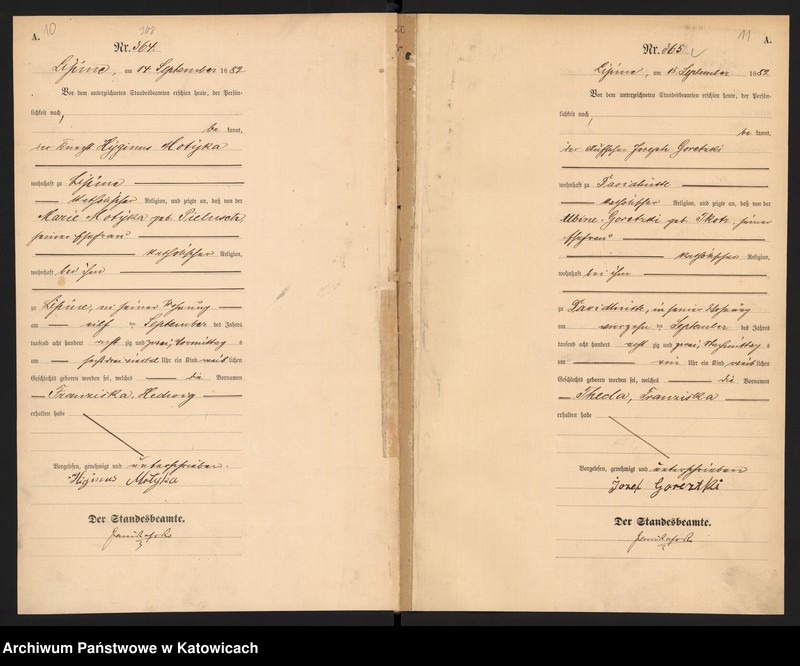 A. 10
Nr. 364.
Lipine, am 14 September 1882
Vor dem unterzeichneten Standesbeamten erschien heute, der Persön-
lichkeit nach,
be kannt,
der Hyginus Motyka
wohnhaft zu Lipine
katholischer Religion, und zeigte an, daß von der
Marie Motyka geb. Pielusch,
seiner Ehefrau
katholischer Religion,
wohnhaft bei ihm
zu Lipine, in seiner Wohnung
am elf ten September des Jahres
tausend acht hundert acht zig und zwei, Vormittag s
um Uhr ein Kind weib lichen
Geschlechts geboren worden sei, welches die Vornamen
Franziska, Hedwig
erhalten habe
Vorgelesen, genehmigt und unterschrieben.
Higinus Motyka
Der Standesbeamte.
11 A.
Nr. 365.
Lipine, am 15 September 1882
Vor dem unterzeichneten Standesbeamten erschien heute, der Persön-
lichkeit nach,
be kannt,
der Aufseher Joseph Goretzki
wohnhaft zu Davidhütte
katholischer Religion, und zeigte an, daß von der
Albine Goretzki geb. Skotz, seiner
Ehefrau
katholischer Religion,
wohnhaft bei ihm
zu Davidhütte, in seiner Wohnung
am vierzehn ten September des Jahres
tausend acht hundert acht zig und zwei, Nachmittag s
um ein Uhr ein Kind weib lichen
Geschlechts geboren worden sei, welches die Vornamen
Thecla, Franziska
erhalten habe
Vorgelesen, genehmigt und unterschrieben
Josef Goretzki
Der Standesbeamte.
Archiwum Państwowe w Katowicach